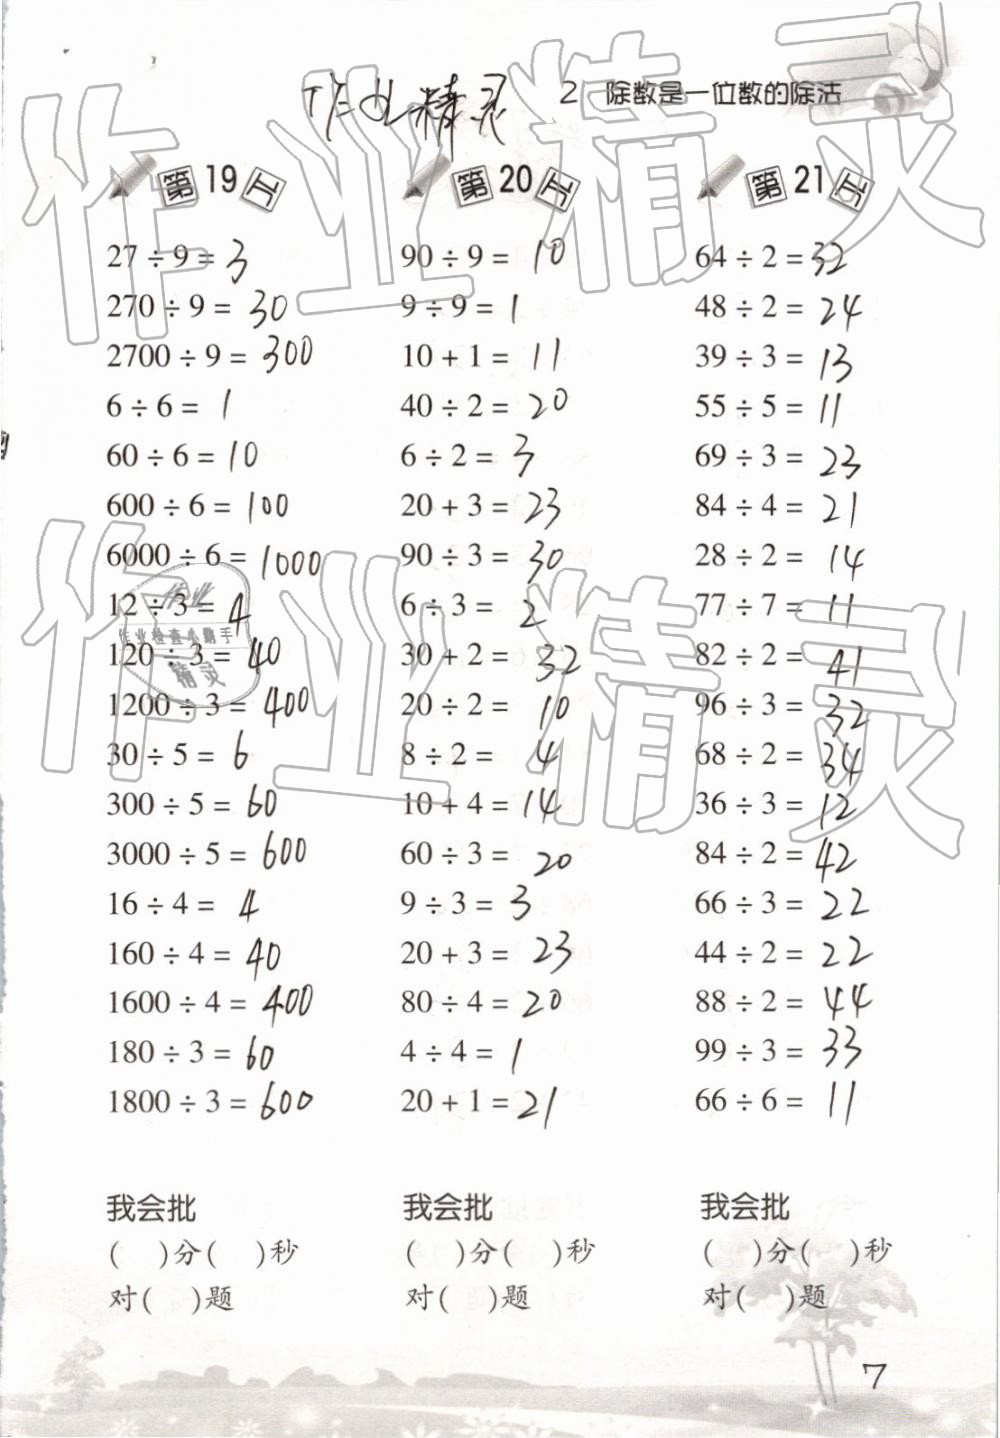 作业精灵
2 除数是一位数的除法
第19天
27÷9=3
270÷9=30
2700÷9=300
6÷6=1
60÷6=10
600÷6=100
6000÷6=1000
12÷3=4
120÷3=40
1200÷3=400
30÷5=6
300÷5=60
3000÷5=600
16÷4=4
160÷4=40
1600÷4=400
180÷3=60
1800÷3=600
我会批
( )分( )秒
对( )题
第20天
90÷9=10
9÷9=1
10+1=11
40÷2=20
6÷2=3
20+3=23
90÷3=30
6÷3=2
30+2=32
20÷2=10
8÷2=4
10+4=14
60÷3=20
9÷3=3
20+3=23
80÷4=20
4÷4=1
20+1=21
我会批
( )分( )秒
对( )题
第21天
64÷2=32
48÷2=24
39÷3=13
55÷5=11
69÷3=23
84÷4=21
28÷2=14
77÷7=11
82÷2=41
96÷3=32
68÷2=34
36÷3=12
84÷2=42
66÷3=22
44÷2=22
88÷2=44
99÷3=33
66÷6=11
我会批
( )分( )秒
对( )题
7
作业精灵
作业精灵
作业
作业检查小助手
精灵